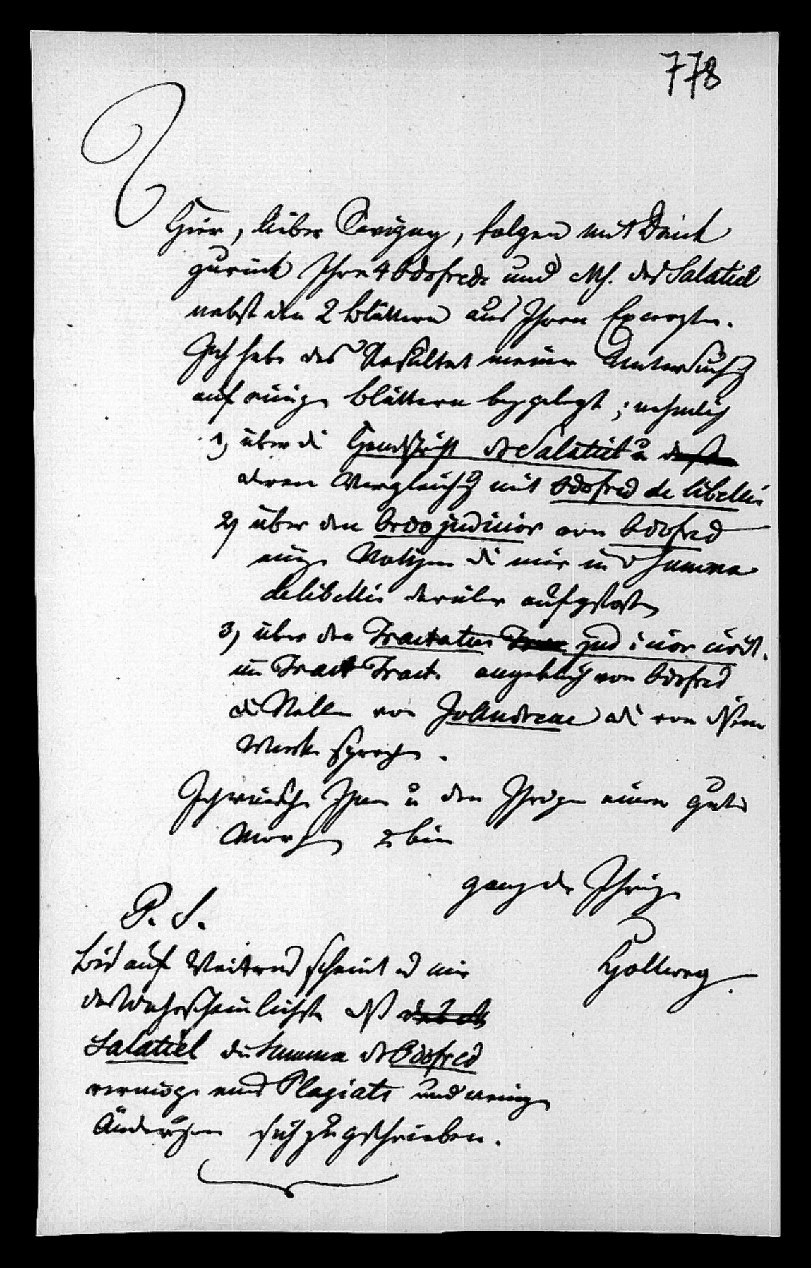 778
Hier, lieber Savigny, folgen mit Dank
zurück Ihre 4 Odofrede und Ms. des Salatiel
nebst den 2 Blättern aus Ihren Excerpten.
Ich habe das Resultat meiner Untersuchg
auf einige Blättern beygelegt; nehmlich
1) über die Handschrift des Salatiel u
deren Vergleichg mit Odofred de libellis
2) über den Ordo judicior von Odofred
einige Notizen die mir in d Summa
de libellis darüber aufgestoßen
3) über den Tractatus judicior
im Tract Tract angeblich von Odofred
die Stellen von Jo Andreae die von diesem
Werke sprechen.
Ich wünsche Ihnen u den Ihrigen einen guten
Morgen u bin
ganz der Ihrige
Hollweg.
P. S.
Bis auf Weiteres scheint es mir
das Wahrscheinlichste daß
Salatiel die Summa des Odofred
vermöge eines Plagiats und wenige
Änderungen sich zugeschrieben.